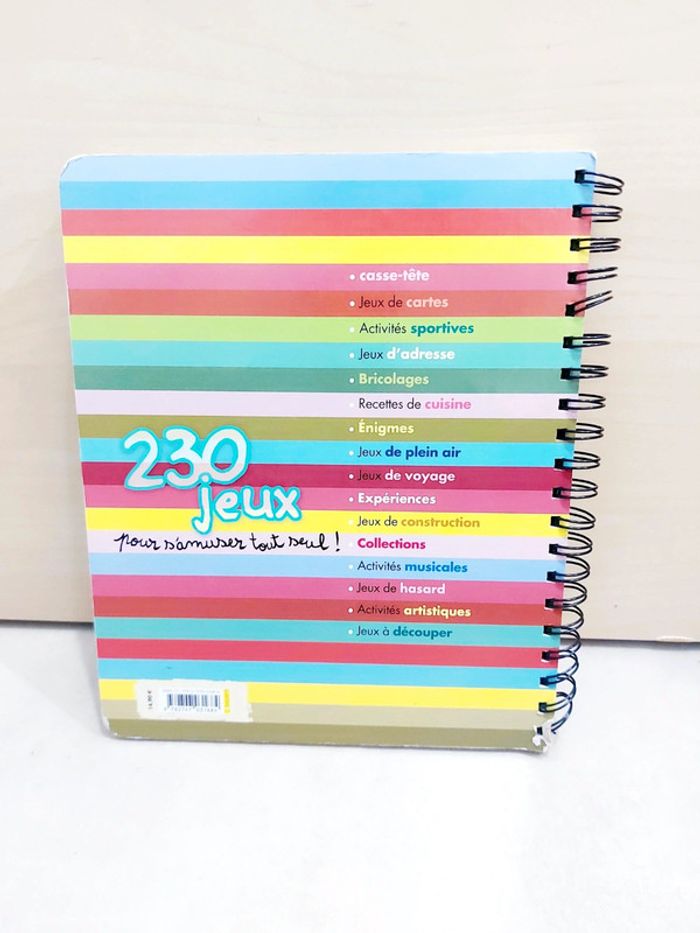 • casse-tête
• Jeux de cartes
• Activités sportives
• Jeux d'adresse
• Bricolages
• Recettes de cuisine
• Énigmes
• Jeux de plein air
• Jeux de voyage
• Expériences
• Jeux de construction
• Collections
• Activités musicales
• Jeux de hasard
• Activités artistiques
• Jeux à découper
230
jeux
pour s'amuser tout seul !
14,90 €